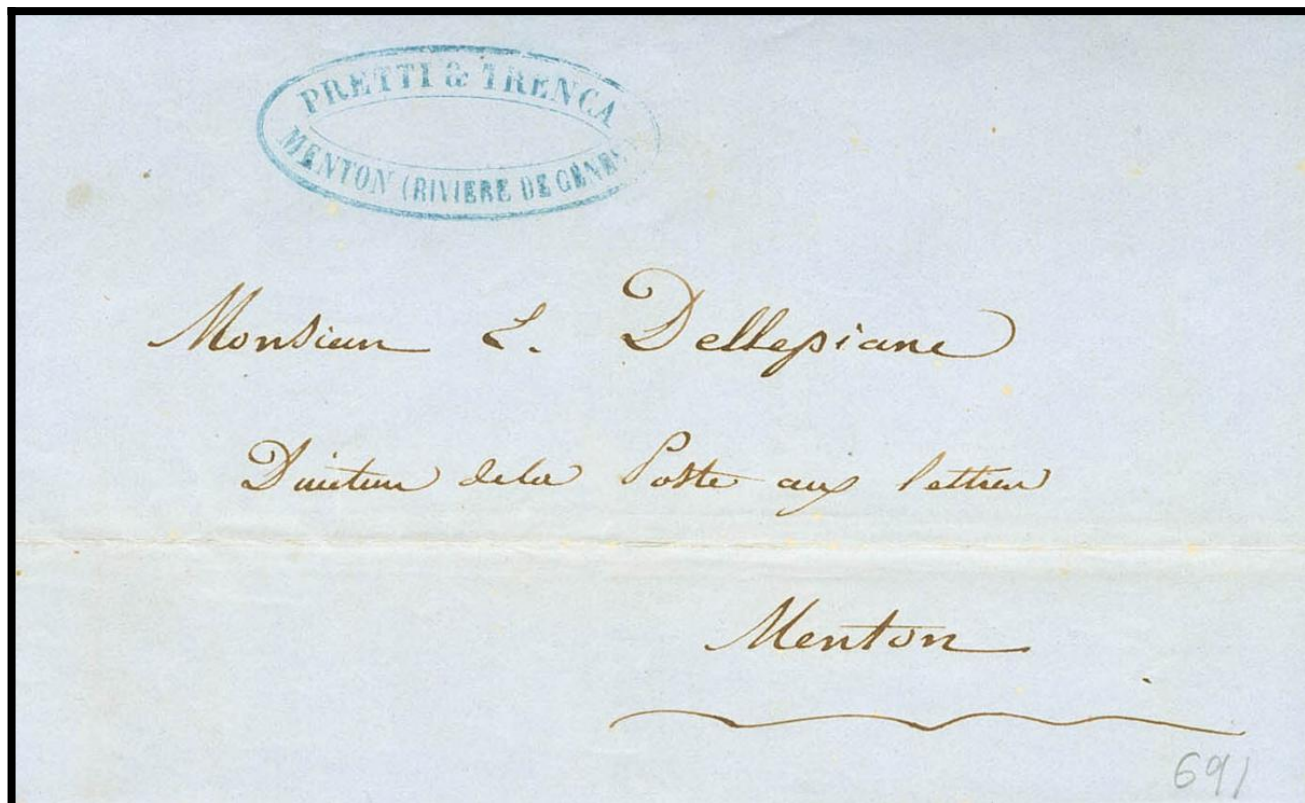 PRETTI & TRENCA
MENTON (RIVIERE DE GÊNES)
Monsieur L. Dellepiane
Directeur de la Poste aux lettres
Menton
691